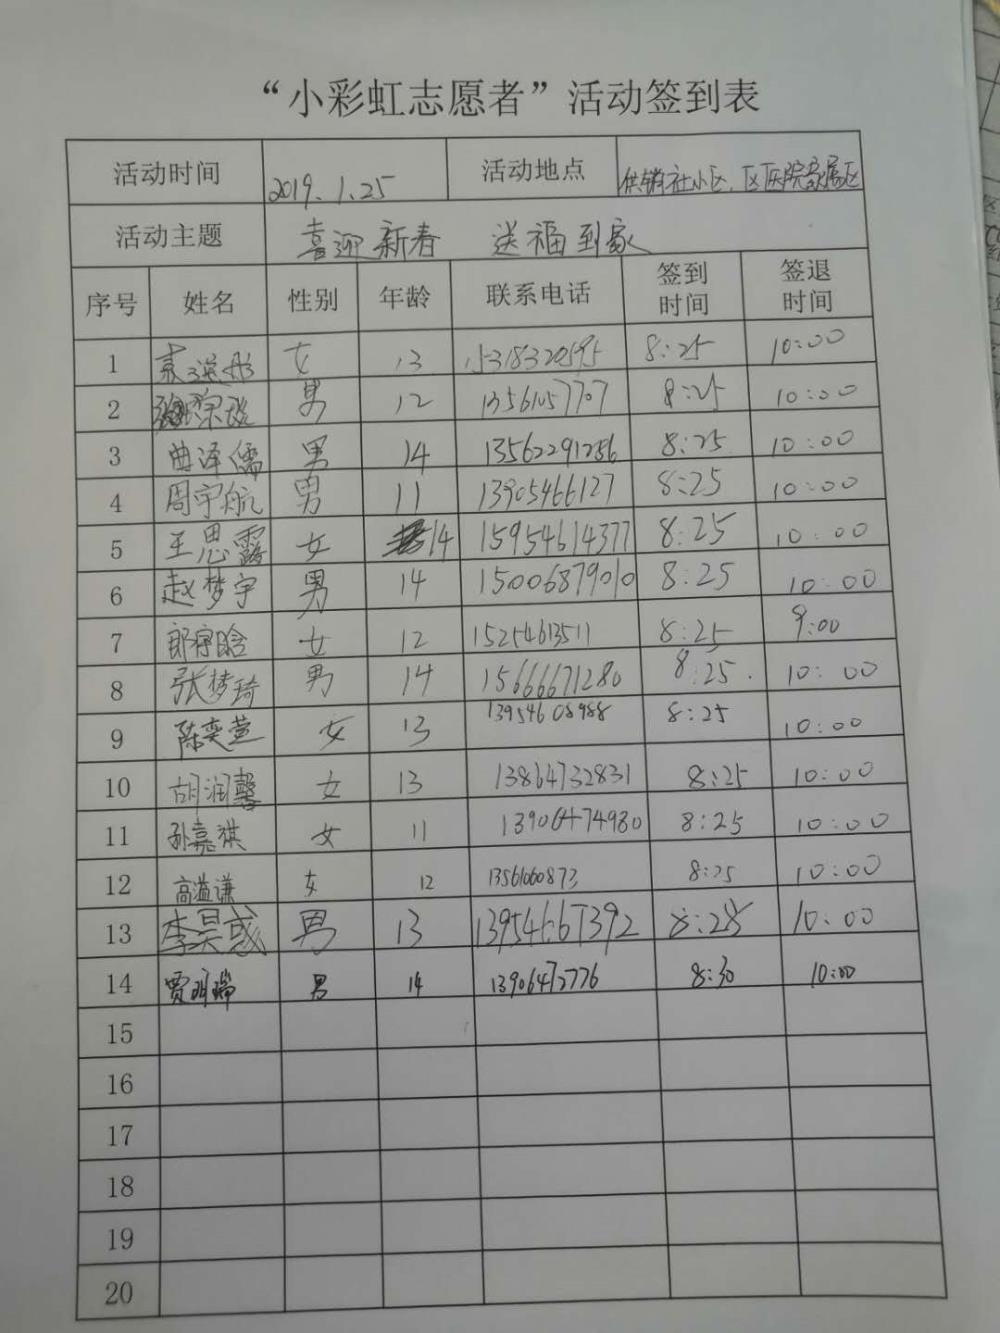 “小彩虹志愿者”活动签到表
活动时间 2019.1.25 活动地点 供销社小区、区医院家属区
活动主题 喜迎新春 送福到家
序号 姓名 性别 年龄 联系电话 签到时间 签退时间
1 女 13 15318320595 8:25 10:00
2 男 12 8:25 10:00
3 曲泽儒 男 14 13562291256 8:25 10:00
4 周宇航 男 11 13905466127 8:25 10:00
5 王思露 女 14 15954614377 8:25 10:00
6 赵梦宇 男 14 15006879010 8:25 10:00
7 女 12 15254613511 8:25 9:00
8 张梦琦 男 14 15666671280 8:25. 10:00
9 陈奕萱 女 13 13954608988 8:25 10:00
10 胡润馨 女 13 13864732831 8:25 10:00
11 孙嘉祺 女 11 13906474980 8:25 10:00
12 高溢谦 女 12 13561060873 8:25 10:00
13 李昊彧 男 13 13954667392 8:28 10:00
14 男 14 13906472776 8:30 10:00
15
16
17
18
19
20